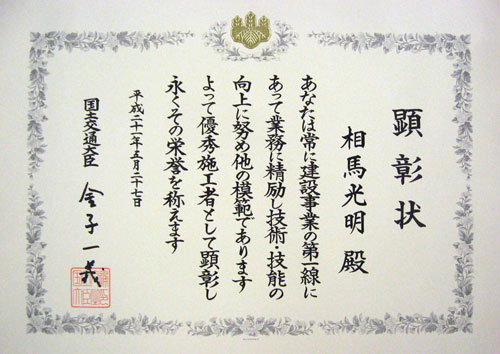 顕彰状
相馬光明 殿
あなたは常に建設事業の第一線に
あって業務に精励し技術・技能の
向上に努め他の模範であります
よって優秀施工者として顕彰し
永くその栄誉を称えます
平成二十一年五月二十七日
国土交通大臣 金子一義